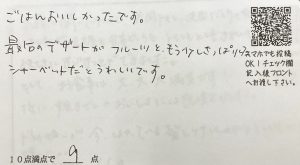 ごはんおいしかったです。
最后のデザートがフルーツと、もう少しさっぱり
シャーベットだとうれしいです。
スマホでも投稿
OK！チェック欄
記入後フロント
へお渡し下さい。
10点満点で 9 点